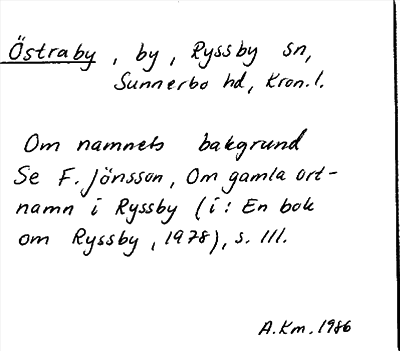 Östraby, by, Ryssby sn,
Sunnerbo hd, Kron.l.
Om namnets bakgrund
Se F. Jönsson, Om gamla ort-
namn i Ryssby (i: En bok
om Ryssby, 1978), s. 111.
A.Km. 1986